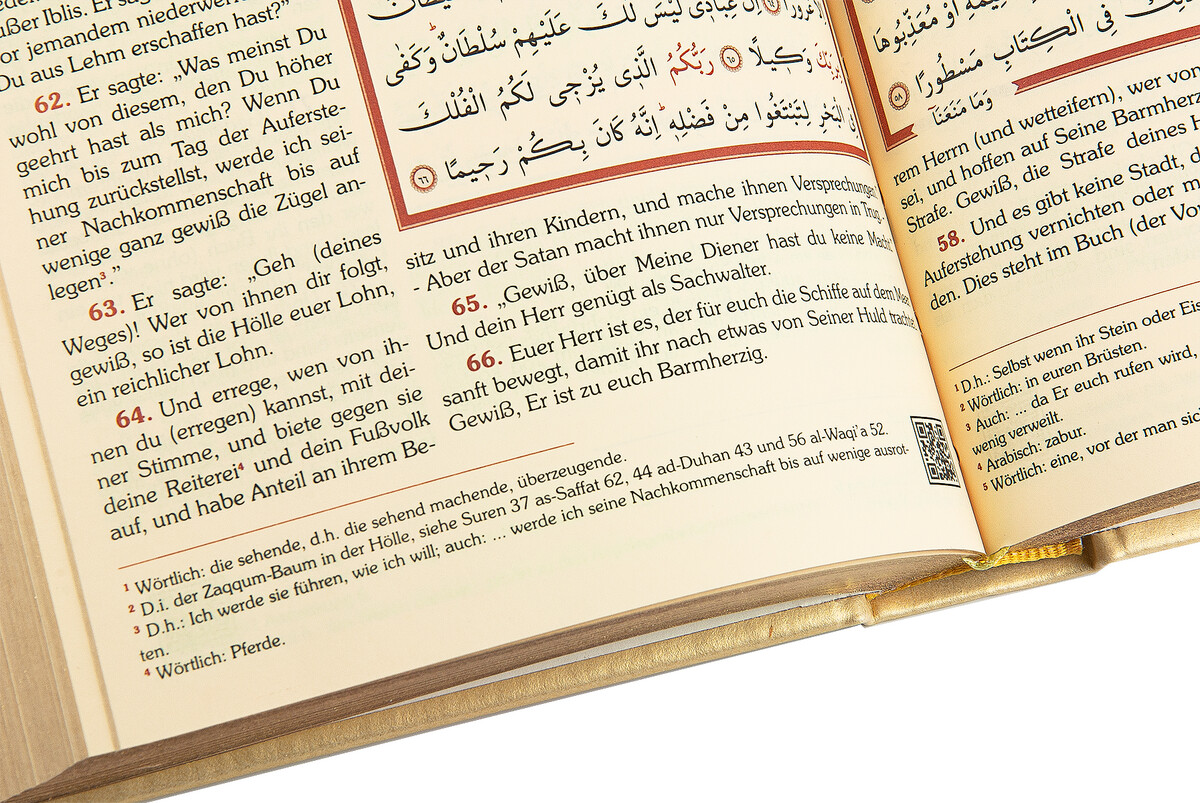 ußer Iblis. Er sag
or jemandem niederwer
Du aus Lehm erschaffen hast?”
62. Er sagte: „Was meinst Du
wohl von diesem, den Du höher
geehrt hast als mich? Wenn Du
mich bis zum Tag der Auferste-
hung zurückstellst, werde ich sei-
ner Nachkommenschaft bis auf
wenige ganz gewiß die Zügel an-
legen³.”
63. Er sagte: „Geh (deines
Weges)! Wer von ihnen dir folgt,
gewiß, so ist die Hölle euer Lohn,
ein reichlicher Lohn.
64. Und errege, wen von ih-
nen du (erregen) kannst, mit dei-
ner Stimme, und biete gegen sie
deine Reiterei⁴ und dein Fußvolk
auf, und habe Anteil an ihrem Be-
إِنَّ عِبَادِي لَيْسَ لَكَ عَلَيْهِمْ سُلْطَانٌ وَكَفٰى
بِرَبِّكَ وَكِيلًا ٦٥ رَبُّكُمُ الَّذِي يُزْجِي لَكُمُ الْفُلْكَ
فِي الْبَحْرِ لِتَبْتَغُوا مِنْ فَضْلِهِ اِنَّهُ كَانَ بِكُمْ رَحِيمًا ٦٦
sitz und ihren Kindern, und mache ihnen Versprechungen.”
- Aber der Satan macht ihnen nur Versprechungen in Trug. -
65. „Gewiß, über Meine Diener hast du keine Macht.”
Und dein Herr genügt als Sachwalter.
66. Euer Herr ist es, der für euch die Schiffe auf dem Meer
sanft bewegt, damit ihr nach etwas von Seiner Huld trachtet.
Gewiß, Er ist zu euch Barmherzig.
¹ Wörtlich: die sehende, d.h. die sehend machende, überzeugende.
² D.i. der Zaqqum-Baum in der Hölle, siehe Suren 37 as-Saffat 62, 44 ad-Duhan 43 und 56 al-Waqi’a 52.
³ D.h.: Ich werde sie führen, wie ich will; auch: ... werde ich seine Nachkommenschaft bis auf wenige ausrot-
ten.
⁴ Wörtlich: Pferde.
اَوْ مُعَذِّبُوهَا
فِي الْكِتَابِ مَسْطُورًا ٥٨
وَمَا مَنَعَنَا
rem Herrn (und wetteifern), wer von
sei, und hoffen auf Seine Barmherz
Strafe. Gewiß, die Strafe deines H
58. Und es gibt keine Stadt, d
Auferstehung vernichten oder m
den. Dies steht im Buch (der Vo
¹ D.h.: Selbst wenn ihr Stein oder Eis
² Wörtlich: in euren Brüsten.
³ Auch: ... da Er euch rufen wird,
wenig verweilt.
⁴ Arabisch: zabur.
⁵ Wörtlich: eine, vor der man sic